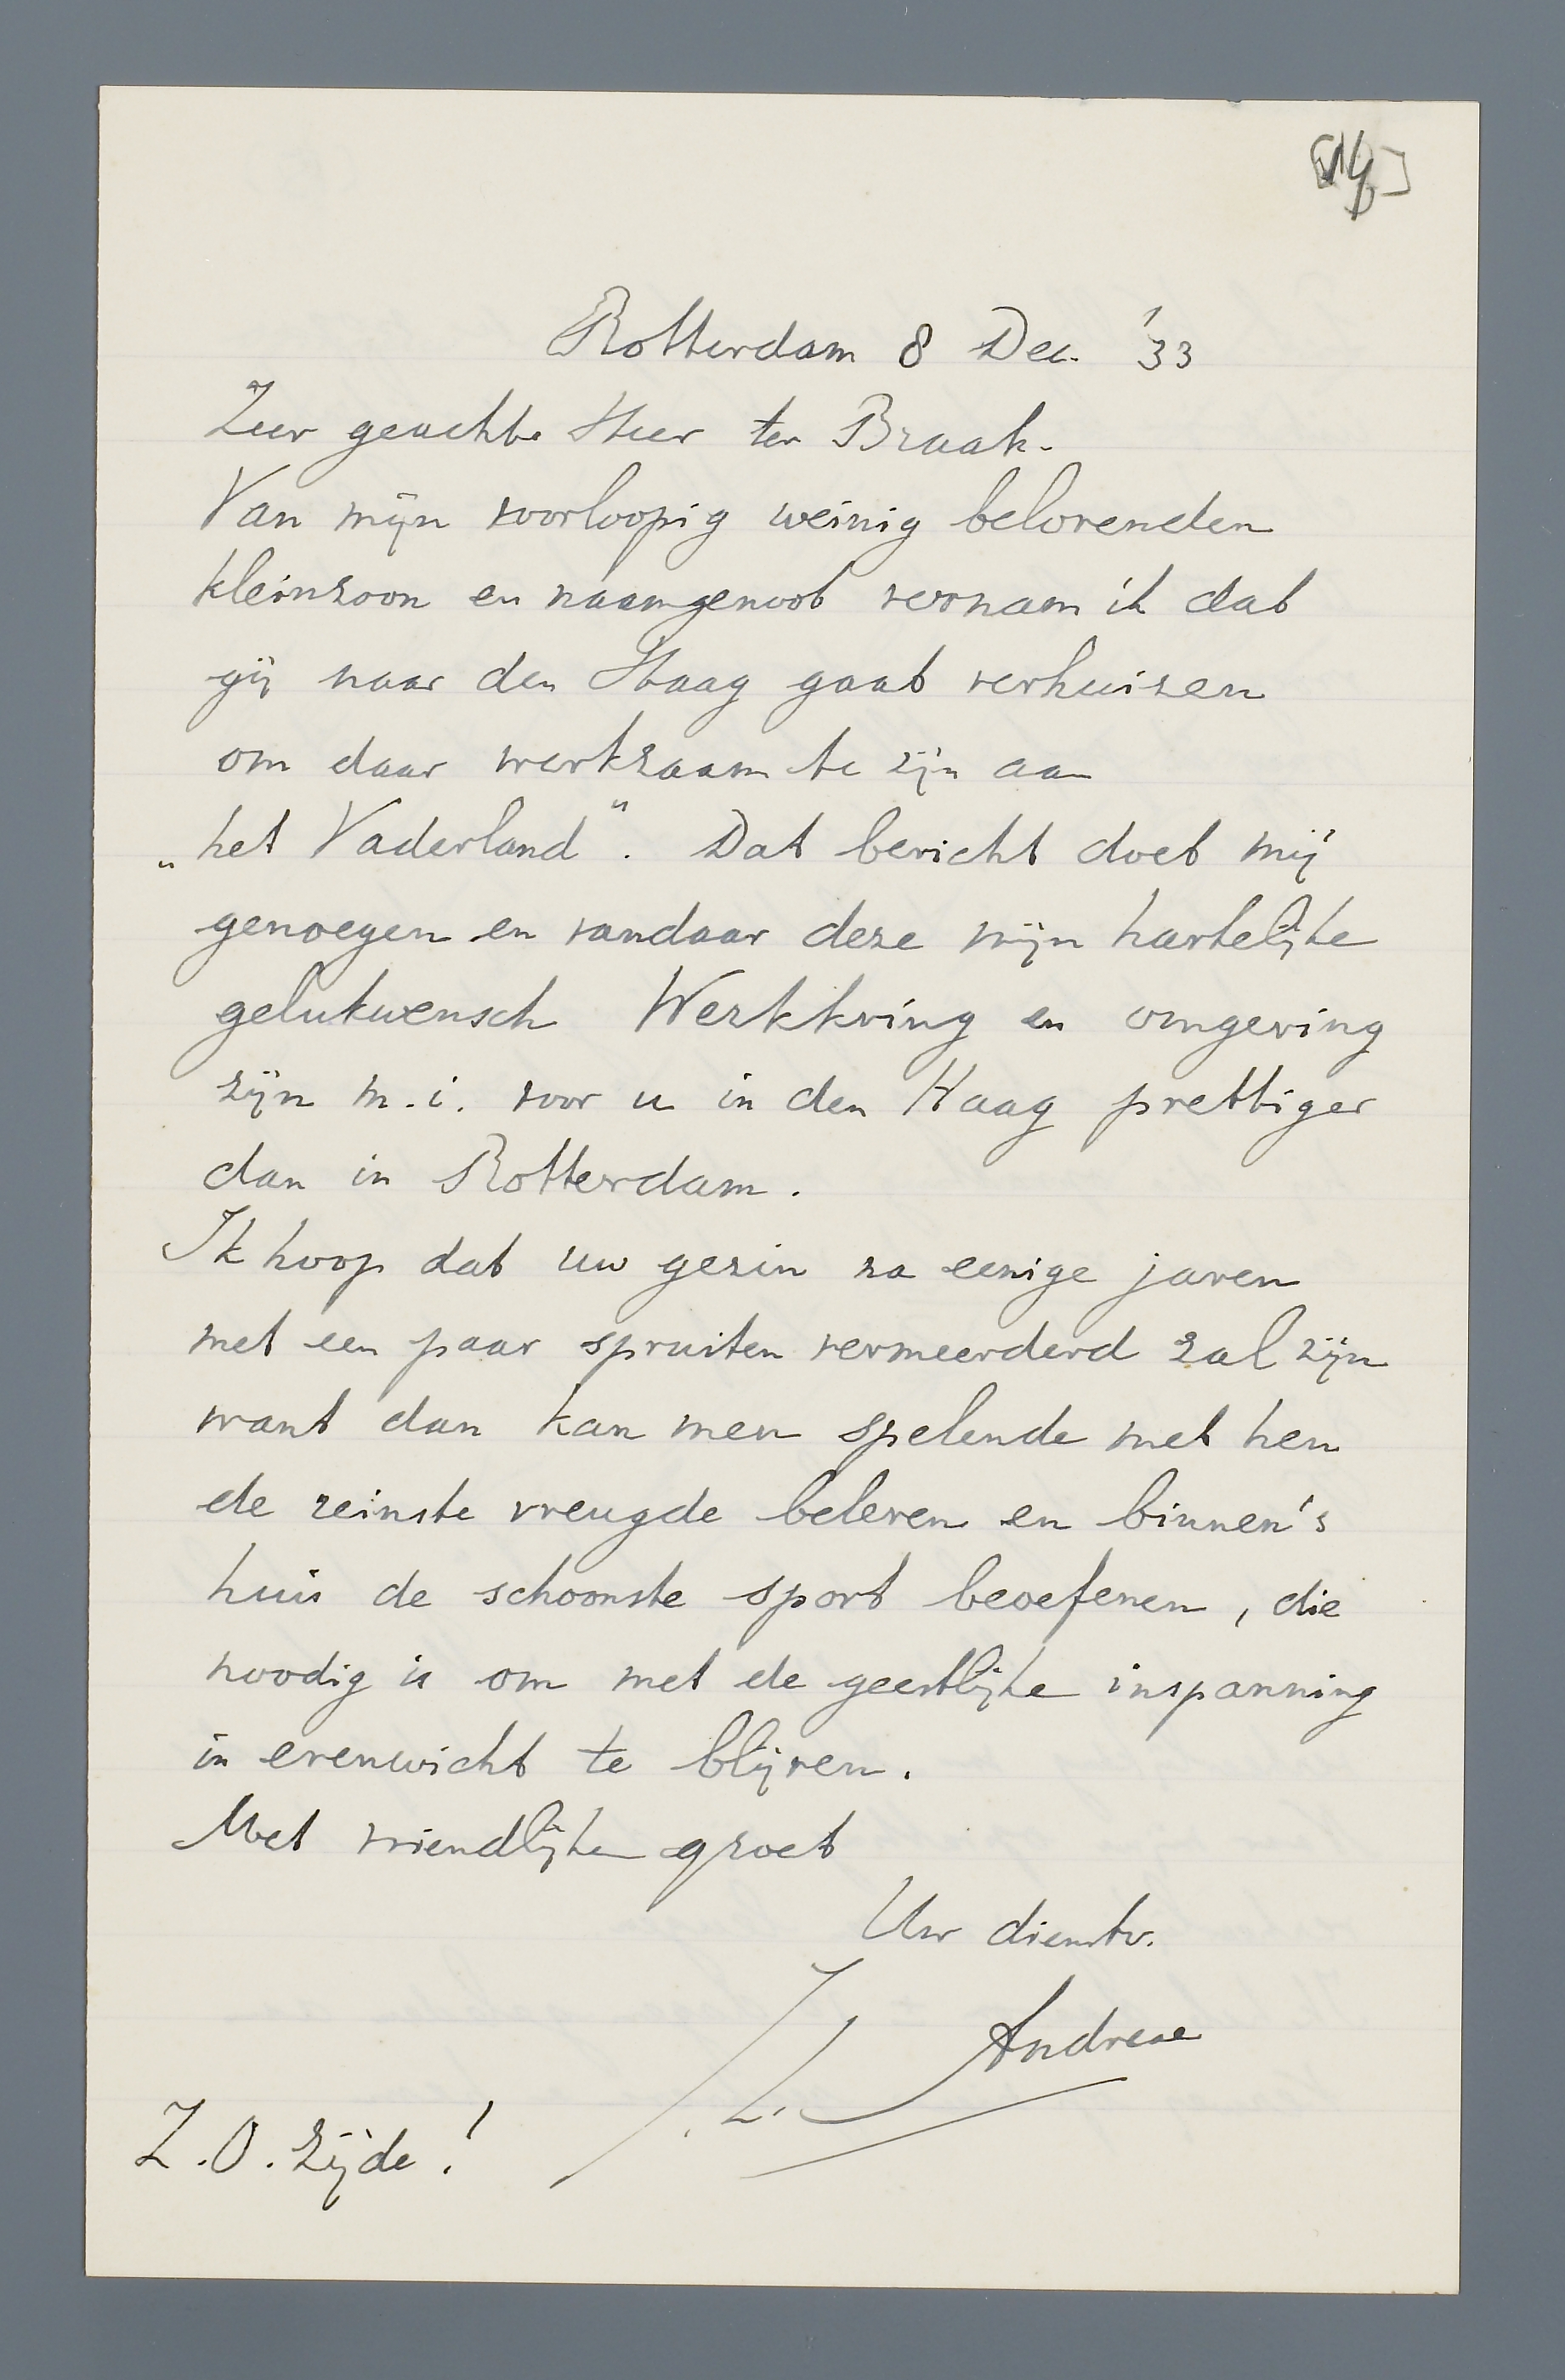 Rotterdam 8 Dec. '33
Zeer geachte Heer ter Braak.
Van mijn voorloopig weinig belovenden
kleinzoon en naamgenoot vernam ik dat
gij naar den Haag gaat verhuizen
om daar werkzaam te zijn aan
„het Vaderland". Dat bericht doet mij
genoegen en vandaar deze mijn hartelijke
gelukwensch Werkkring en omgeving
zijn m.i. voor u in den Haag prettiger
dan in Rotterdam.
Ik hoop dat uw gezin na eenige jaren
met een paar spruiten vermeerderd zal zijn
want dan kan men spelende met hen
de reinste vreugde beleven en binnen's
huis de schoonste sport beoefenen, die
noodig is om met de geestlijke inspanning
in evenwicht te blijven.
Met vriendlijken groet
Uw dienstv.
Andreae
Z.O. Zijde!